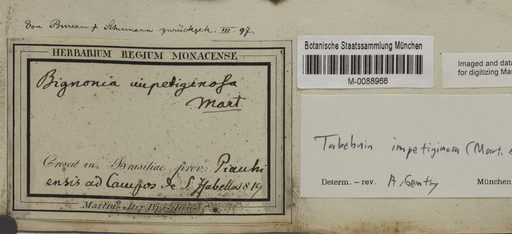 Von Bureau & Schumann zurückgek. III. 97.
HERBARIUM REGIUM MONACENSE.
Bignonia impetiginosa
Mart
Crescit in Brasiliae prov. Piauhi
ensis ad Campos de S. Isabella 819
Martius Iter Brasil.
Botanische Staatssammlung München
M-0088966
Imaged and data
for digitizing Ma
Tabebuia impetiginosa (Mart.
Determ. – rev. A. Gentry München